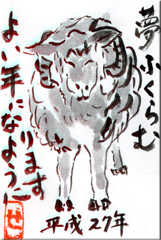 夢
ふくらむ
よい年になように
ります
平成27年